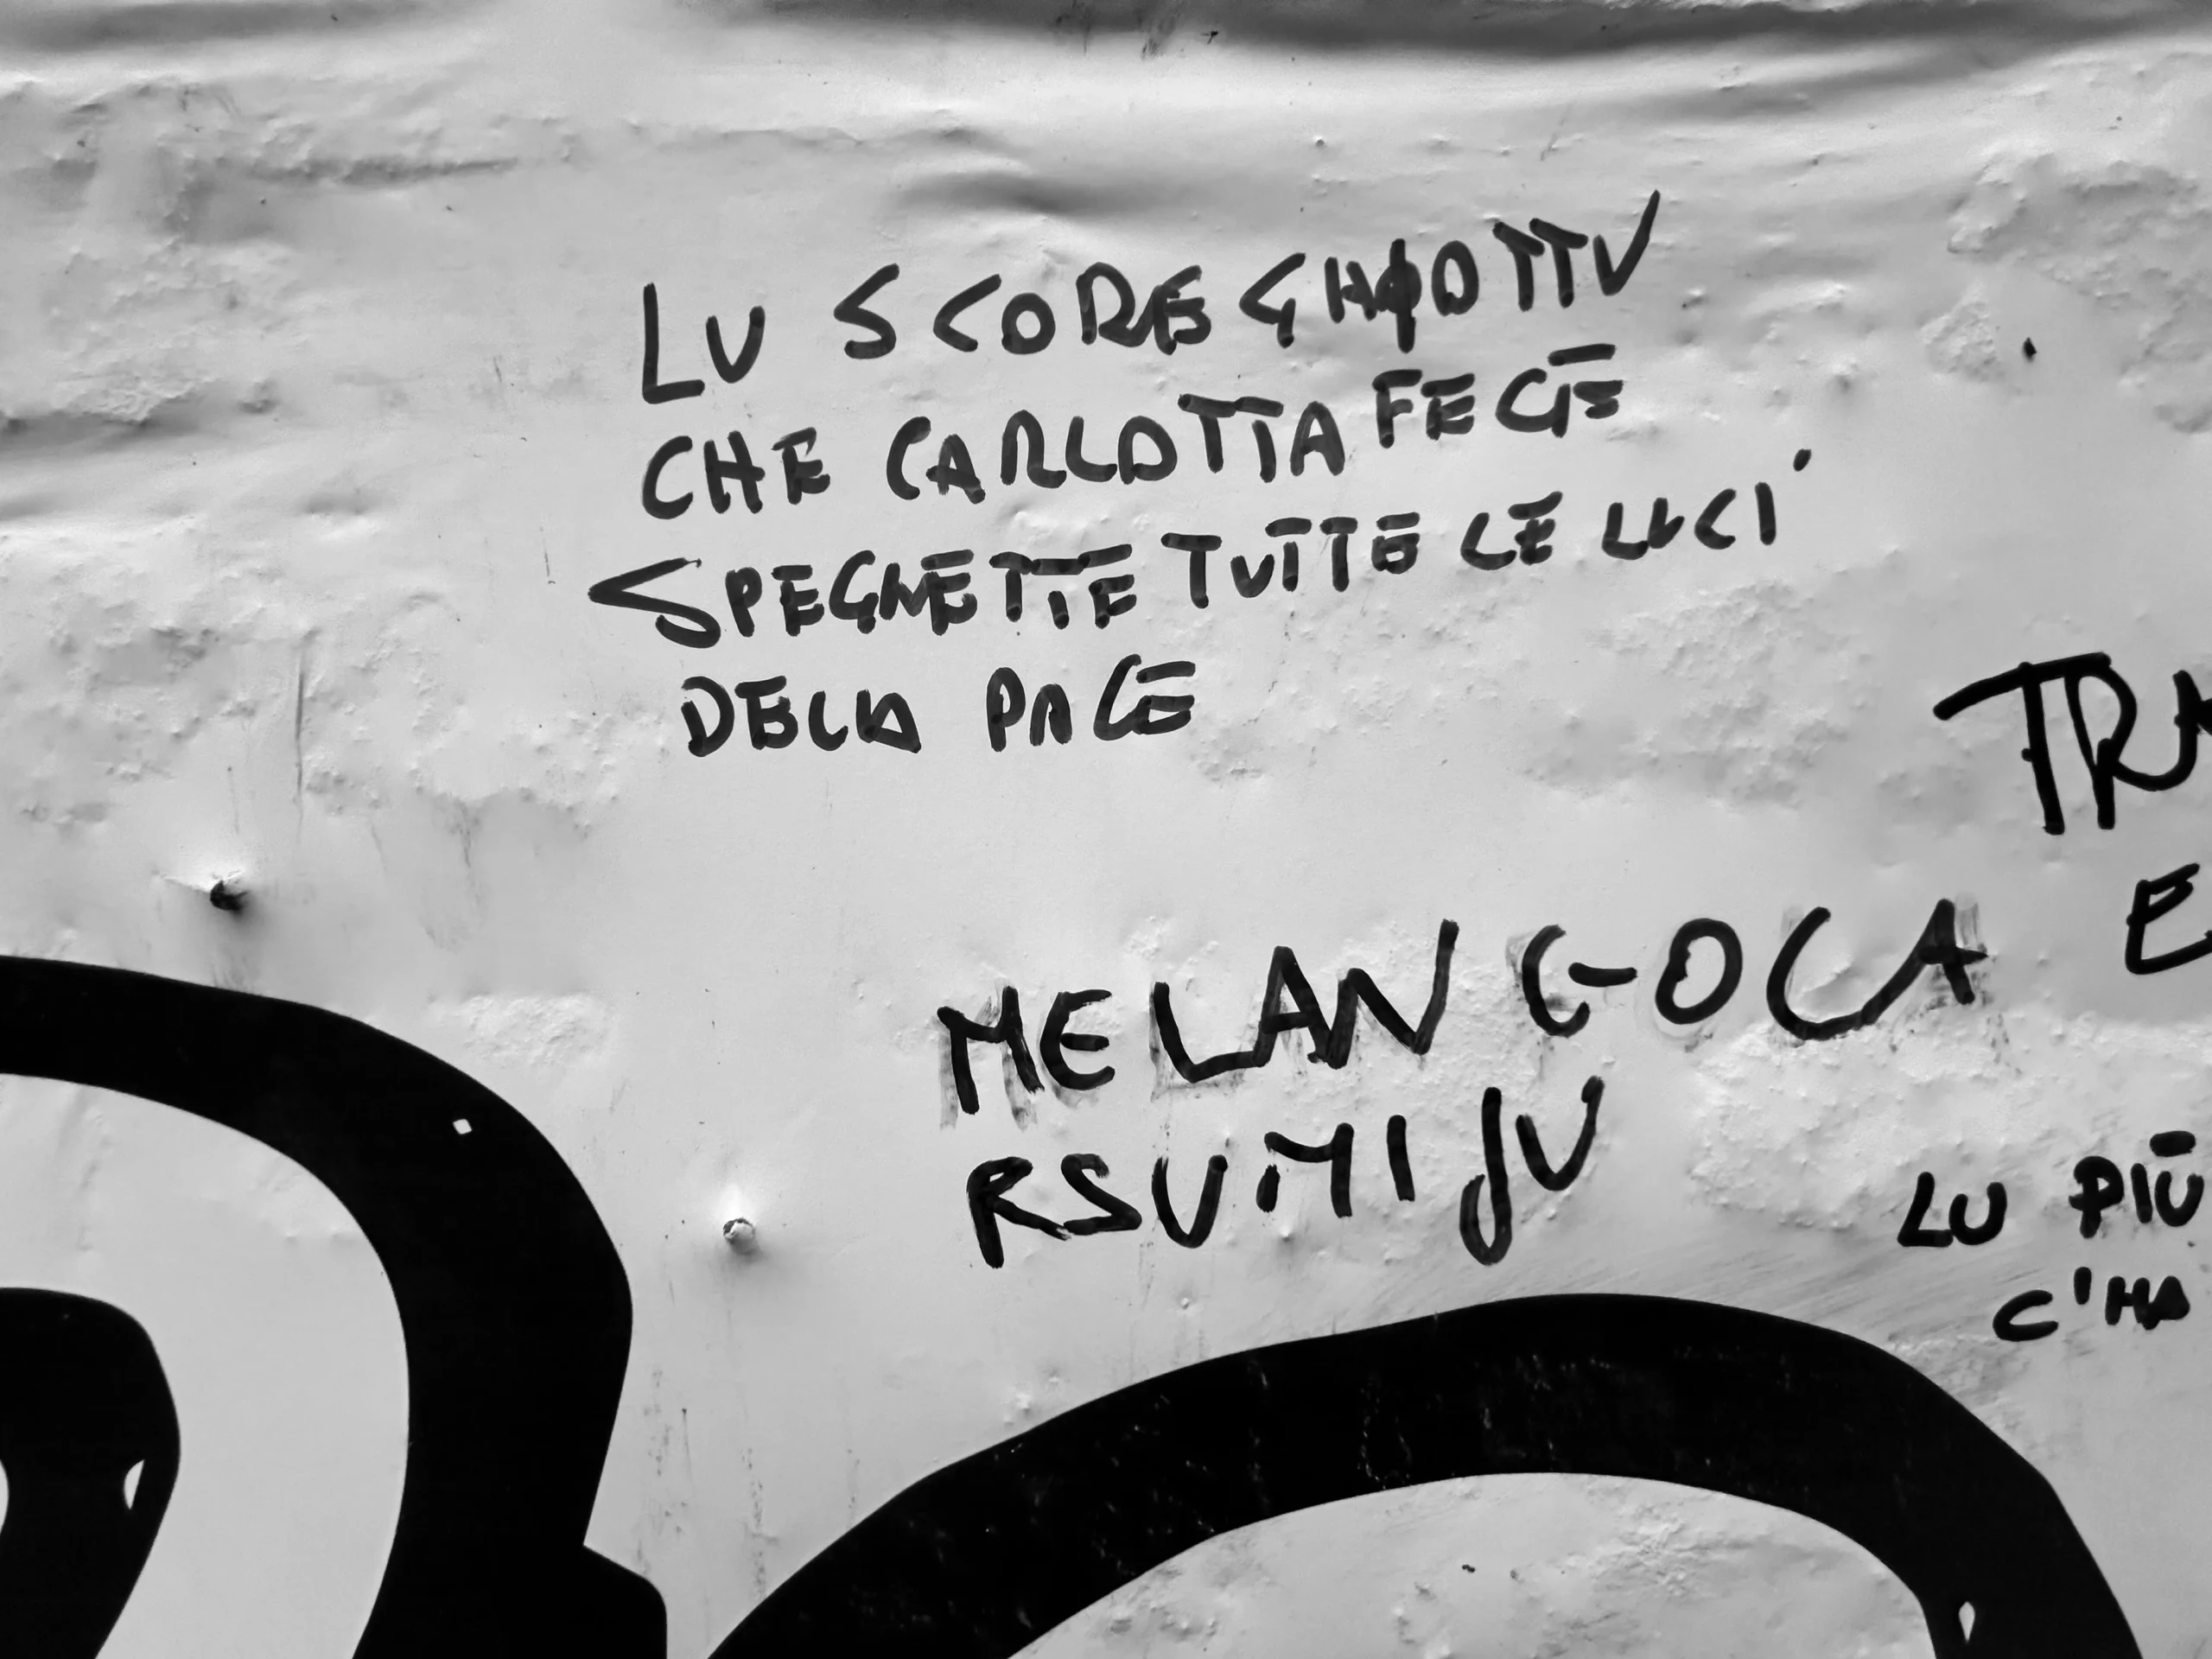 LU SCOREGHIOTTU
CHE CARLOTTA FECE
SPEGNETTE TUTTE LE LUCI
DELLA PACE
TRA
E
MELANGOLA
RSUMIJU
LU PIÙ
C'HA